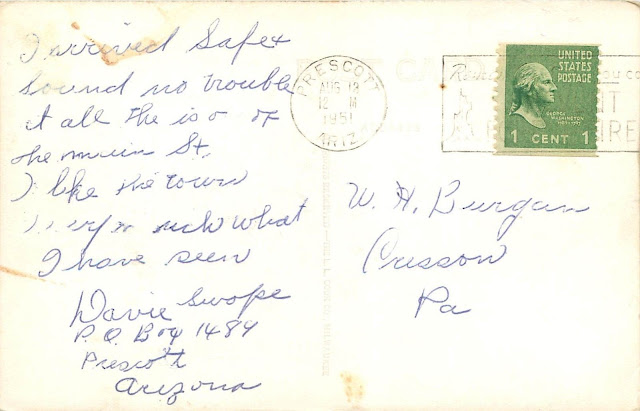 I arrived Safe &
Sound no trouble
at all the is a of
the main St.
I like the town
very much what
I have seen
Davie Swope
P.O. Box 1484
Prescott
Arizona
PRESCOTT
AUG 13
12 M
1951
ARIZ.
UNITED
STATES
POSTAGE
GEORGE
WASHINGTON
1789-1797
1 CENT 1
W. H. Burgan
Cresson
Pa